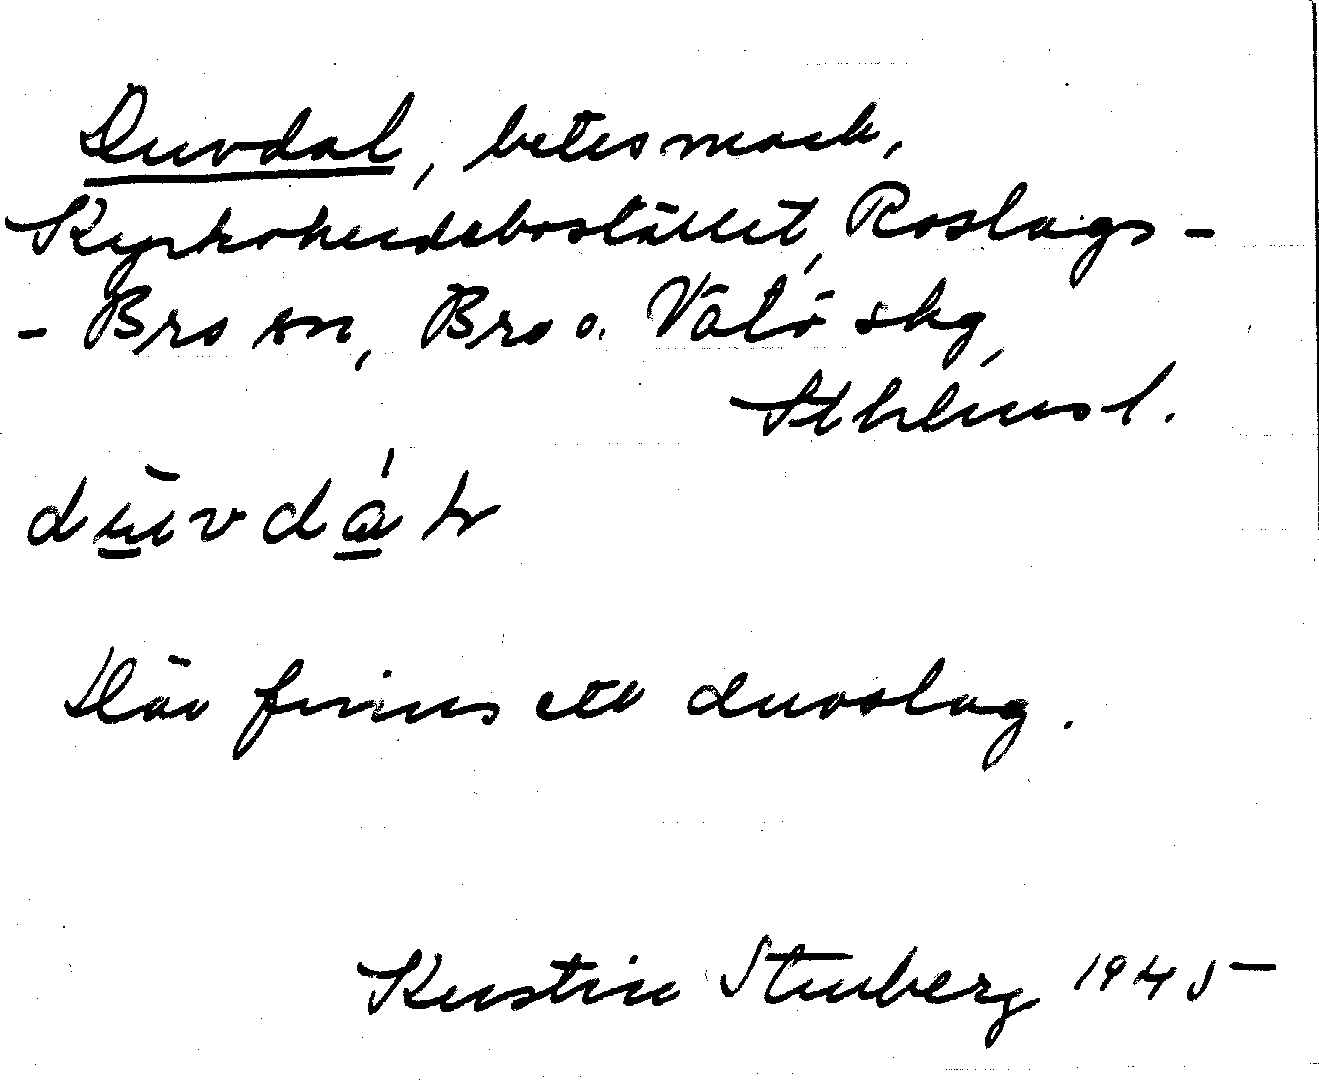 Duvdal, betesmark,
Kyrkoherdebostället, Roslags-
- Bro sn, Bro o. Vätö skg,
Sthlms l.
Där finns ett duvslag.
Kerstin Stenberg 1945